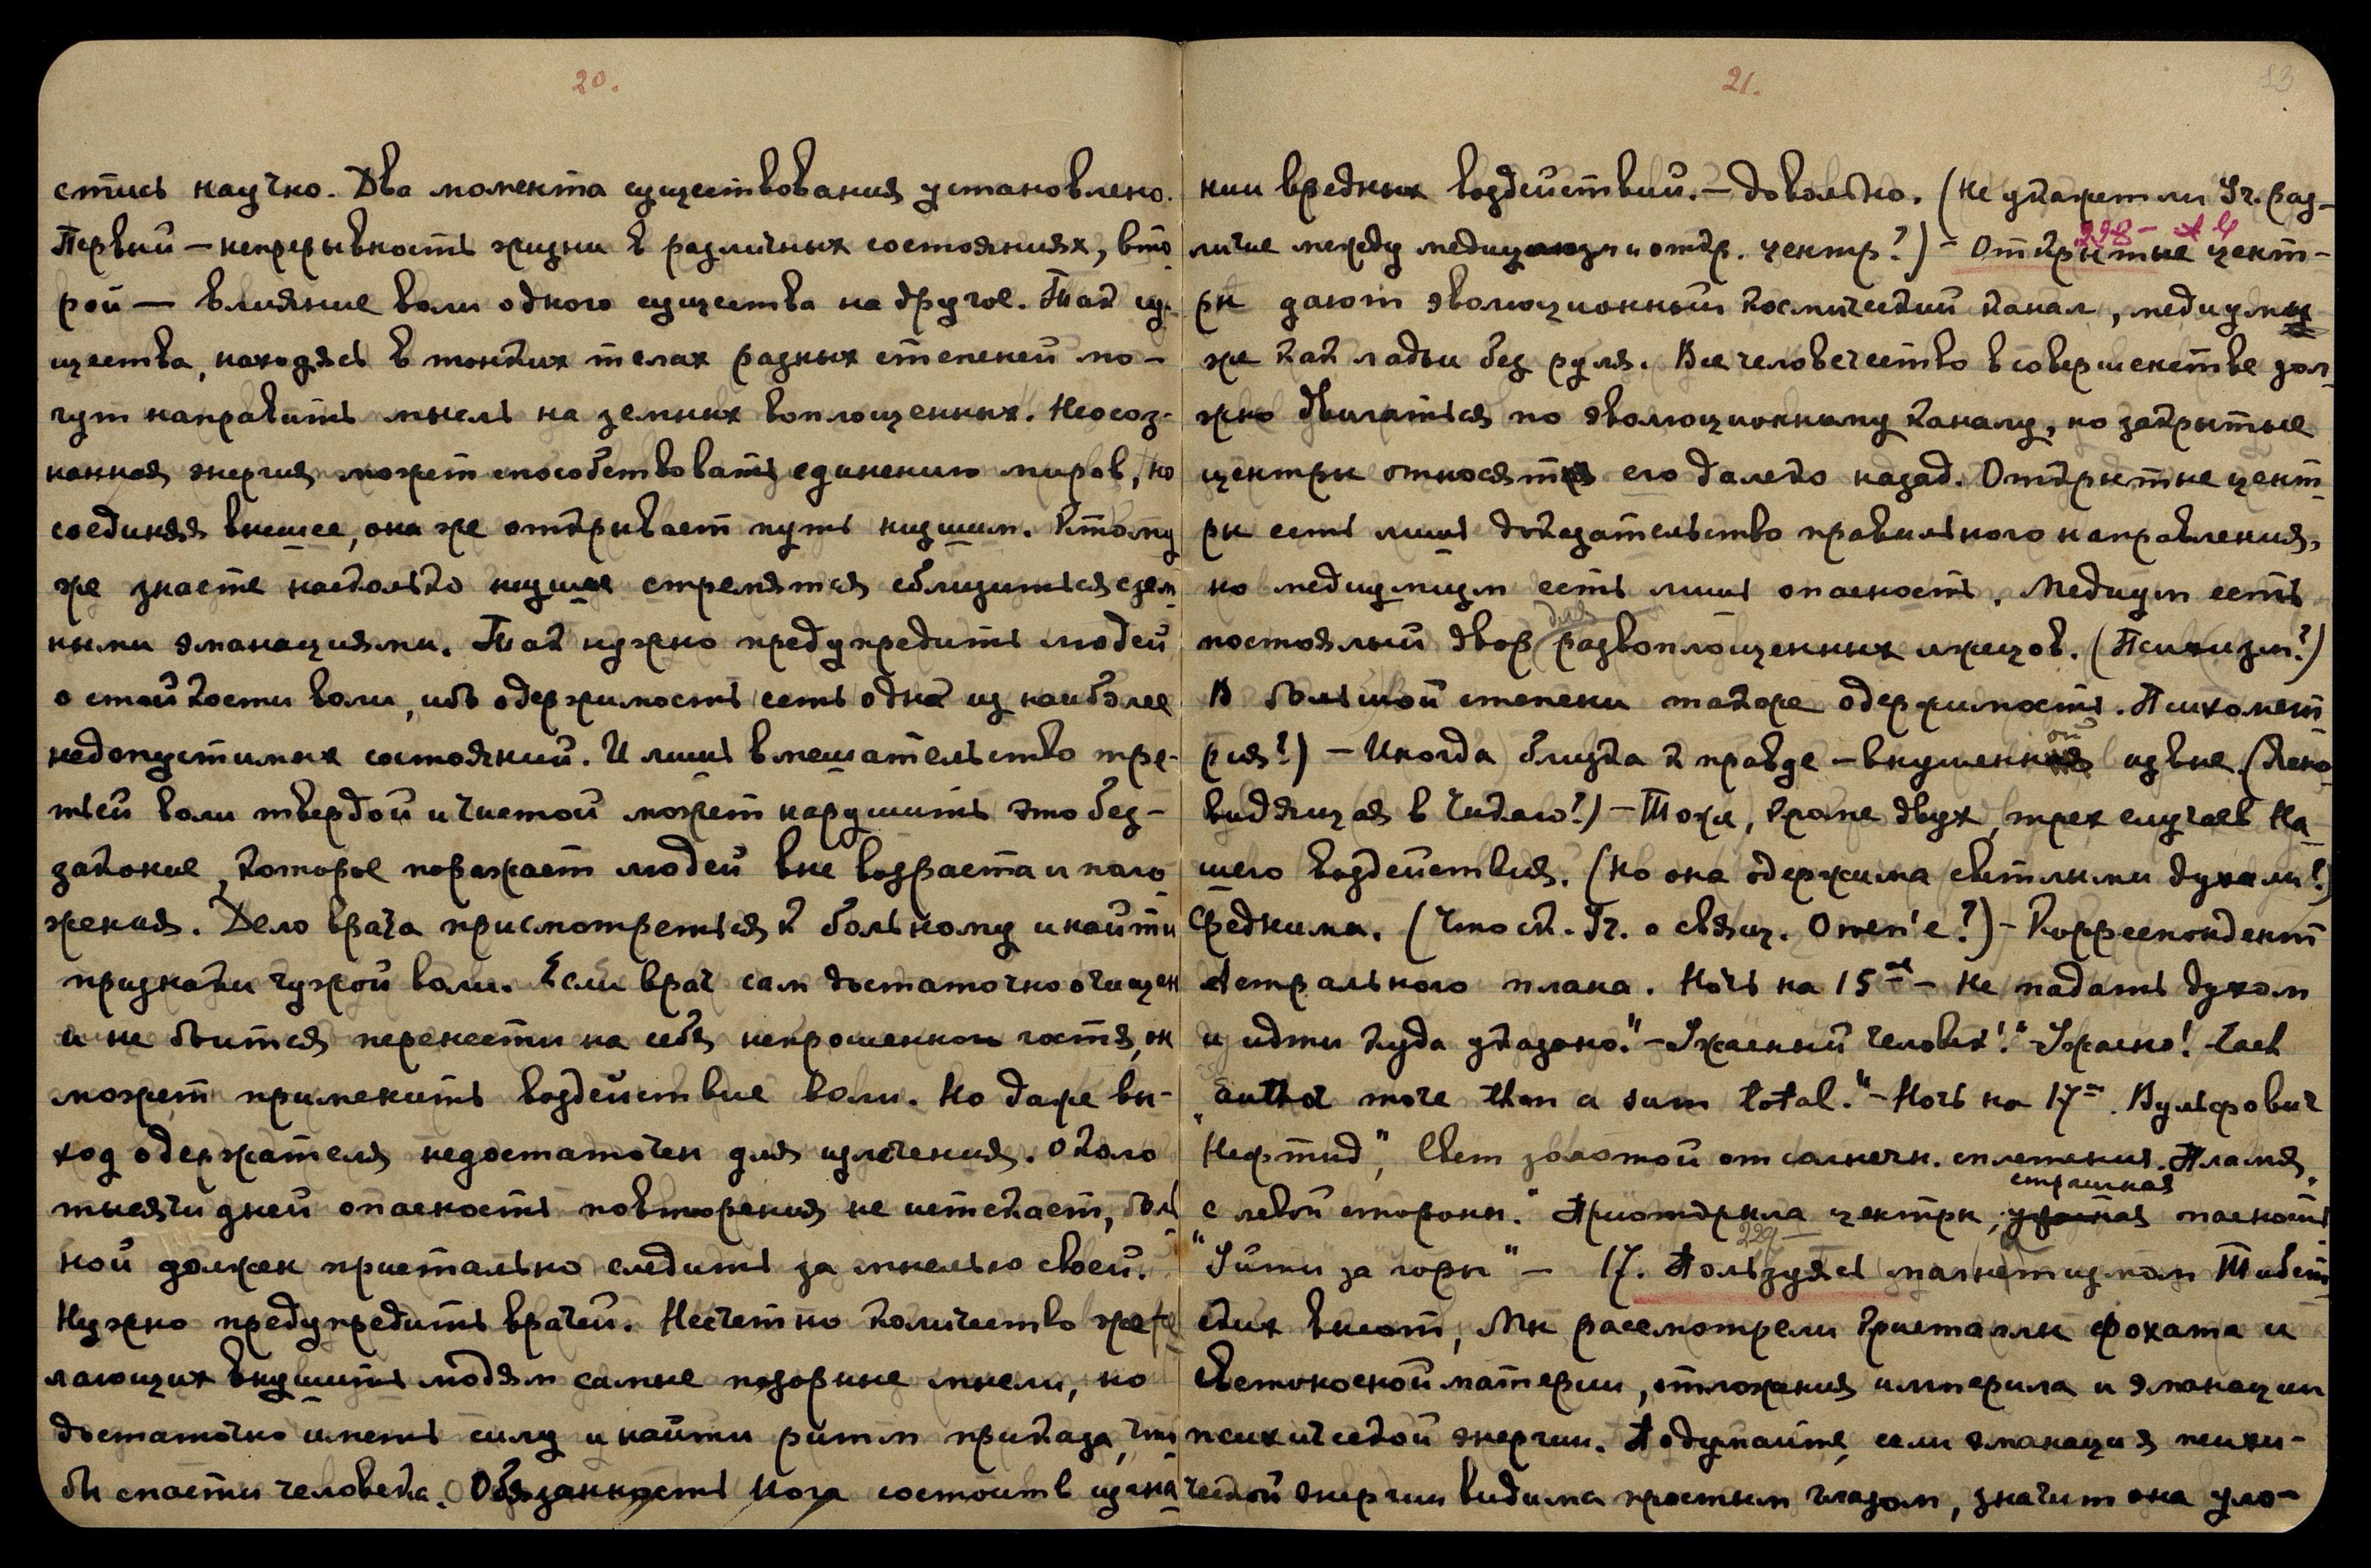 20.
стись научно. Два момента существования установлено.
Первый — непрерывность жизни в различных состояниях, вто
рой — влияние воли одного существа на другое. Так су-
щества, находясь в тонких телах разных степеней мо-
гут направить мысль на земных воплощенных. Неосоз-
нанная энергия может способствовать единению миров, но
соединяя высшее, она же открывает путь низшим. К тому
же знаете насколько низшие стремятся сблизиться с зем
ными эманациями. Так нужно предупредить людей
о стойкости воли, ибо одержимость есть одна из наиболее
недопустимых состояний. И лишь вмешательство тре-
тьей воли твердой и чистой может нарушить это без-
законие, которое поражает людей вне возраста и поло
жения. Дело врача присмотреться к больному и найти
признаки чужой воли. Если врач сам достаточно очищен
и не боится перенести на себя непрошенного гостя, он
может применить воздействие воли. Но даже вы-
ход одержателя недостаточен для излечения. Около
тысячи дней опасность повторения не истекает, боль
ной должен пристально следить за мыслью своей.
Нужно предупредить врачей. Несчетно количество же
лающих внушить людям самые позорные мысли, но
достаточно иметь силу и найти ритм приказа, что
бы спасти человека. Обязанность Йога состоит в изгна
21.
83
нии вредных воздействий. — Довольно. (Не укажет ли Уч. раз-
228 —
личие между медиумизм и откр. центр?) — Открытые цент-
ры дают эволюционный космический канал, медиумы
же как ладьи без руля. Все человечество в совершенстве дол
жно двигаться по эволюционному каналу, но закрытые
центры относят его далеко назад. Открытые цент
ры есть лишь доказательство правильного направления,
но медиумизм есть лишь опасность. Медиум есть
для
постоялый двор развоплощенных лжецов. (Психизм?)
В большой степени также одержимость. Психомет
рия?) — Иногда близка к правде — внушенной извне. (Ясно
видящая в Чикаго?) — Тоже, кроме двух, трех случаев На
шего воздействия. (Но она одержима светлыми духами?)
Средними. (Что ск. Уч. о связи. Омен'е?) — Корреспондент
Астрального плана. Ночь на 15 — Не падать духом
и идти куда указано." — Ужасный человек!" Ужасно!
author more than a sum total." — Ночь на 17. Вульфович
"Нефтид", Свет золотой от солнечн. сплетения. Пламя
страшная
с левой стороны." Приоткрыла центры, ужасная опасность
229 —
"Уйти за горы" — 17. Пользуясь магнетизмом Тибет
ских высот, Мы рассмотрели кристаллы фохата и
светоносной материи, отложения империла и эманации
психической энергии. Подумайте, если эманация психи-
ческой энергии видима простым глазом, значит она уло-